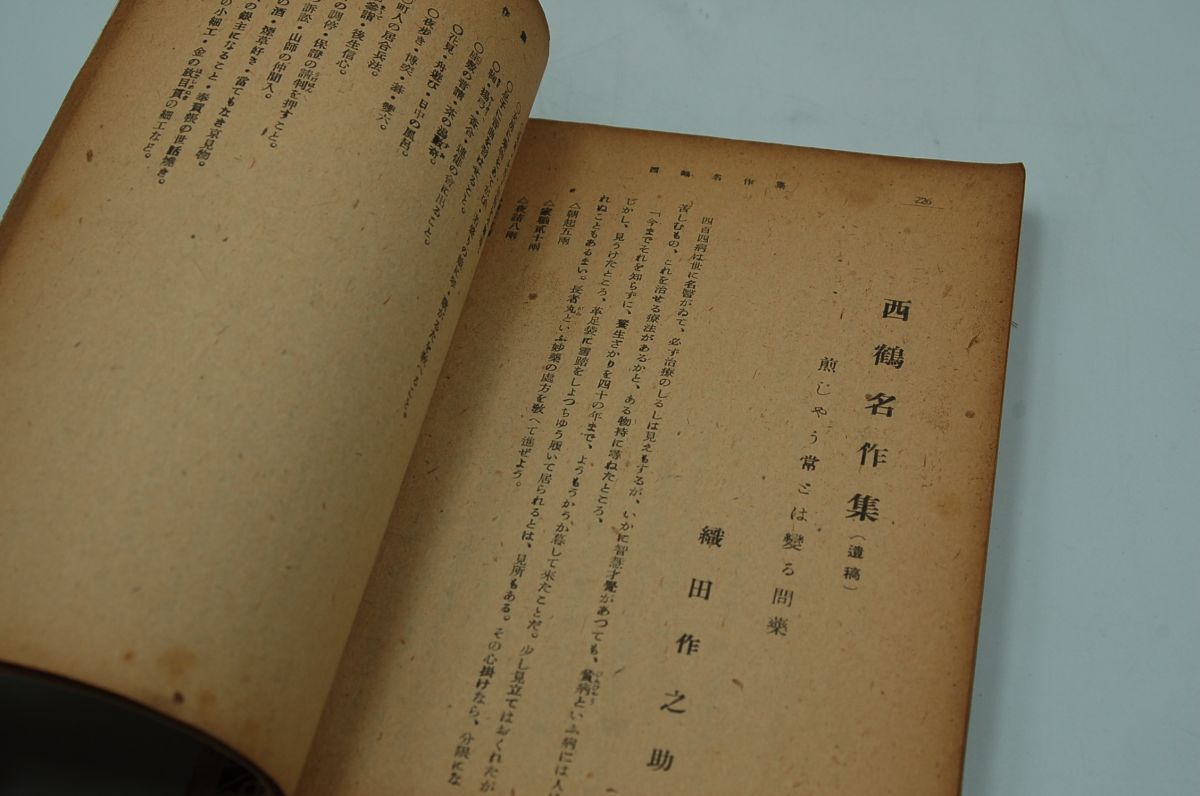 226
西鶴名作集
西鶴名作集（遺稿）
煎じやう常とは變る問藥
織田作之助
四百四病は世に名醫がゐて、必ず治療のしるしは見えもするが、いかに智慧才覺があつても、貧病といふ病には
苦しむもの、これを治せる療法があるかと、ある物持に尋ねたところ、
「今までそれを知らずに、養生さかりを四十の年まで、ようもうかうか暮して來たことだ。少し見立てはおくれたが
しかし、見うけたところ、革足袋に雪踏をしよつちゆう履いて居られるとは、見所もある。その心掛けなら、分限にな
れぬこともあるまい。長者丸といふ妙藥の處方を敎へて進ぜよう。
△朝起五兩
△家職貳十兩
△夜詰八兩
○花見・舟遊び・日中の風呂。
○夜歩き・博奕・碁・雙六。
町人の居合兵法。
參詣・後生信心。
の調停・保證の請判を押すこと。
訴訟・山師の仲間人。
の酒・煙草好き・當てもなき京見物。
の銀主になること・奉賀帳の世話燒き。
の小細工・金の放目貫の細工など。